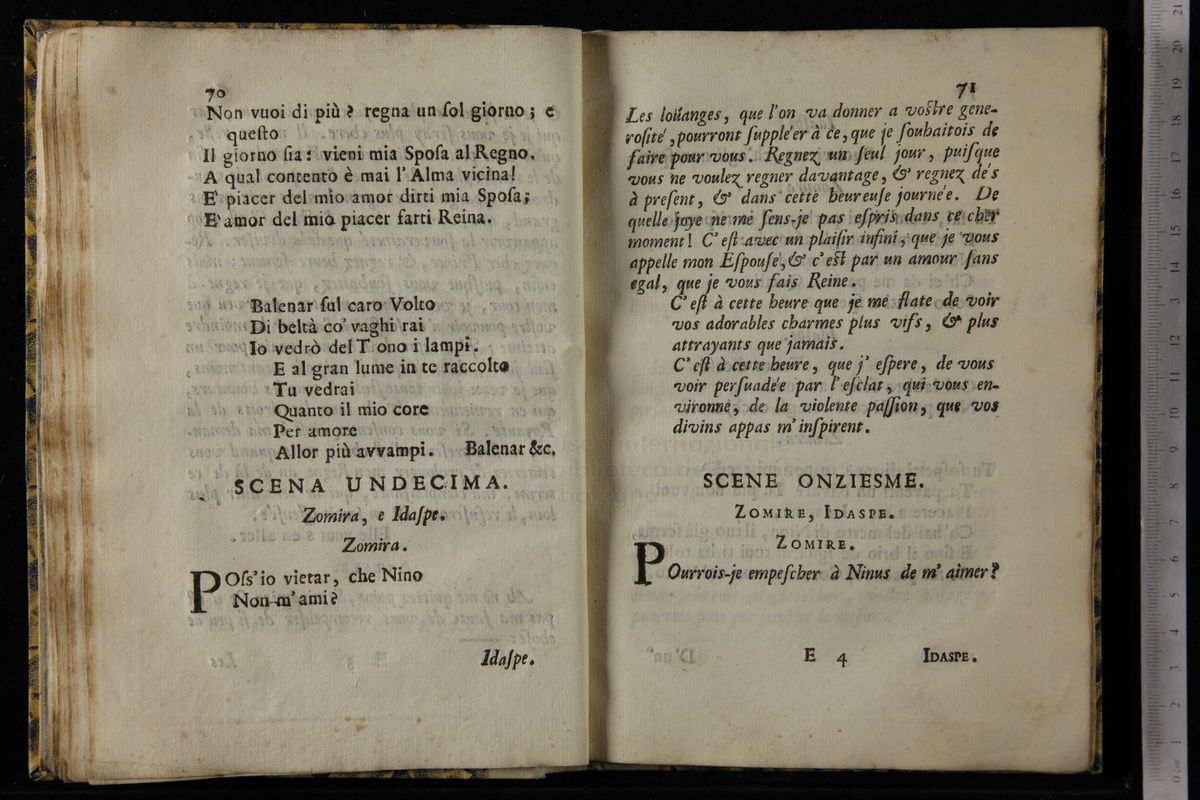 70
Non vuoi di più? regna un ſol giorno; e
queſto
Il giorno ſia: vieni mia Spoſa al Regno.
A qual contento è mai l'Alma vicina!
E' piacer del mio amor dirti mia Spoſa;
E' amor del mio piacer farti Reina.
Balenar ſul caro Volto
Di beltà co' vaghi rai
Io vedrò del T ono i lampi.
E al gran lume in te raccolto
Tu vedrai
Quanto il mio core
Per amore
Allor più avvampi. Balenar &c.
SCENA UNDECIMA.
Zomira, e Idaſpe.
Zomira.
POſs'io vietar, che Nino
Non m'ami?
Idaſpe.
71
Les loüanges, que l'on va donner a voſtre gene-
roſité, pourront ſuppléer à ce, que je ſouhaitois de
faire pour vous. Regnez un ſeul jour, puiſque
vous ne voulez regner davantage, & regnez dés
à preſent, & dans cette heureuſe journée. De
quelle joye ne me ſens-je pas eſpris dans ce cher
moment! C'eſt avec un plaiſir infini, que je vous
appelle mon Eſpouſe, & c'eſt par un amour ſans
egal, que je vous fais Reine.
C'eſt à cette heure que je me flate de voir
vos adorables charmes plus vifs, & plus
attrayants que jamais.
C'eſt à cette heure, que j' eſpere, de vous
voir perſuadée par l'eſclat, qui vous en-
vironne, de la violente paſſion, que vos
divins appas m'inſpirent.
SCENE ONZIESME.
ZOMIRE, IDASPE.
ZOMIRE.
POurrois-je empeſcher à Ninus de m'aimer?
E 4 IDASPE.